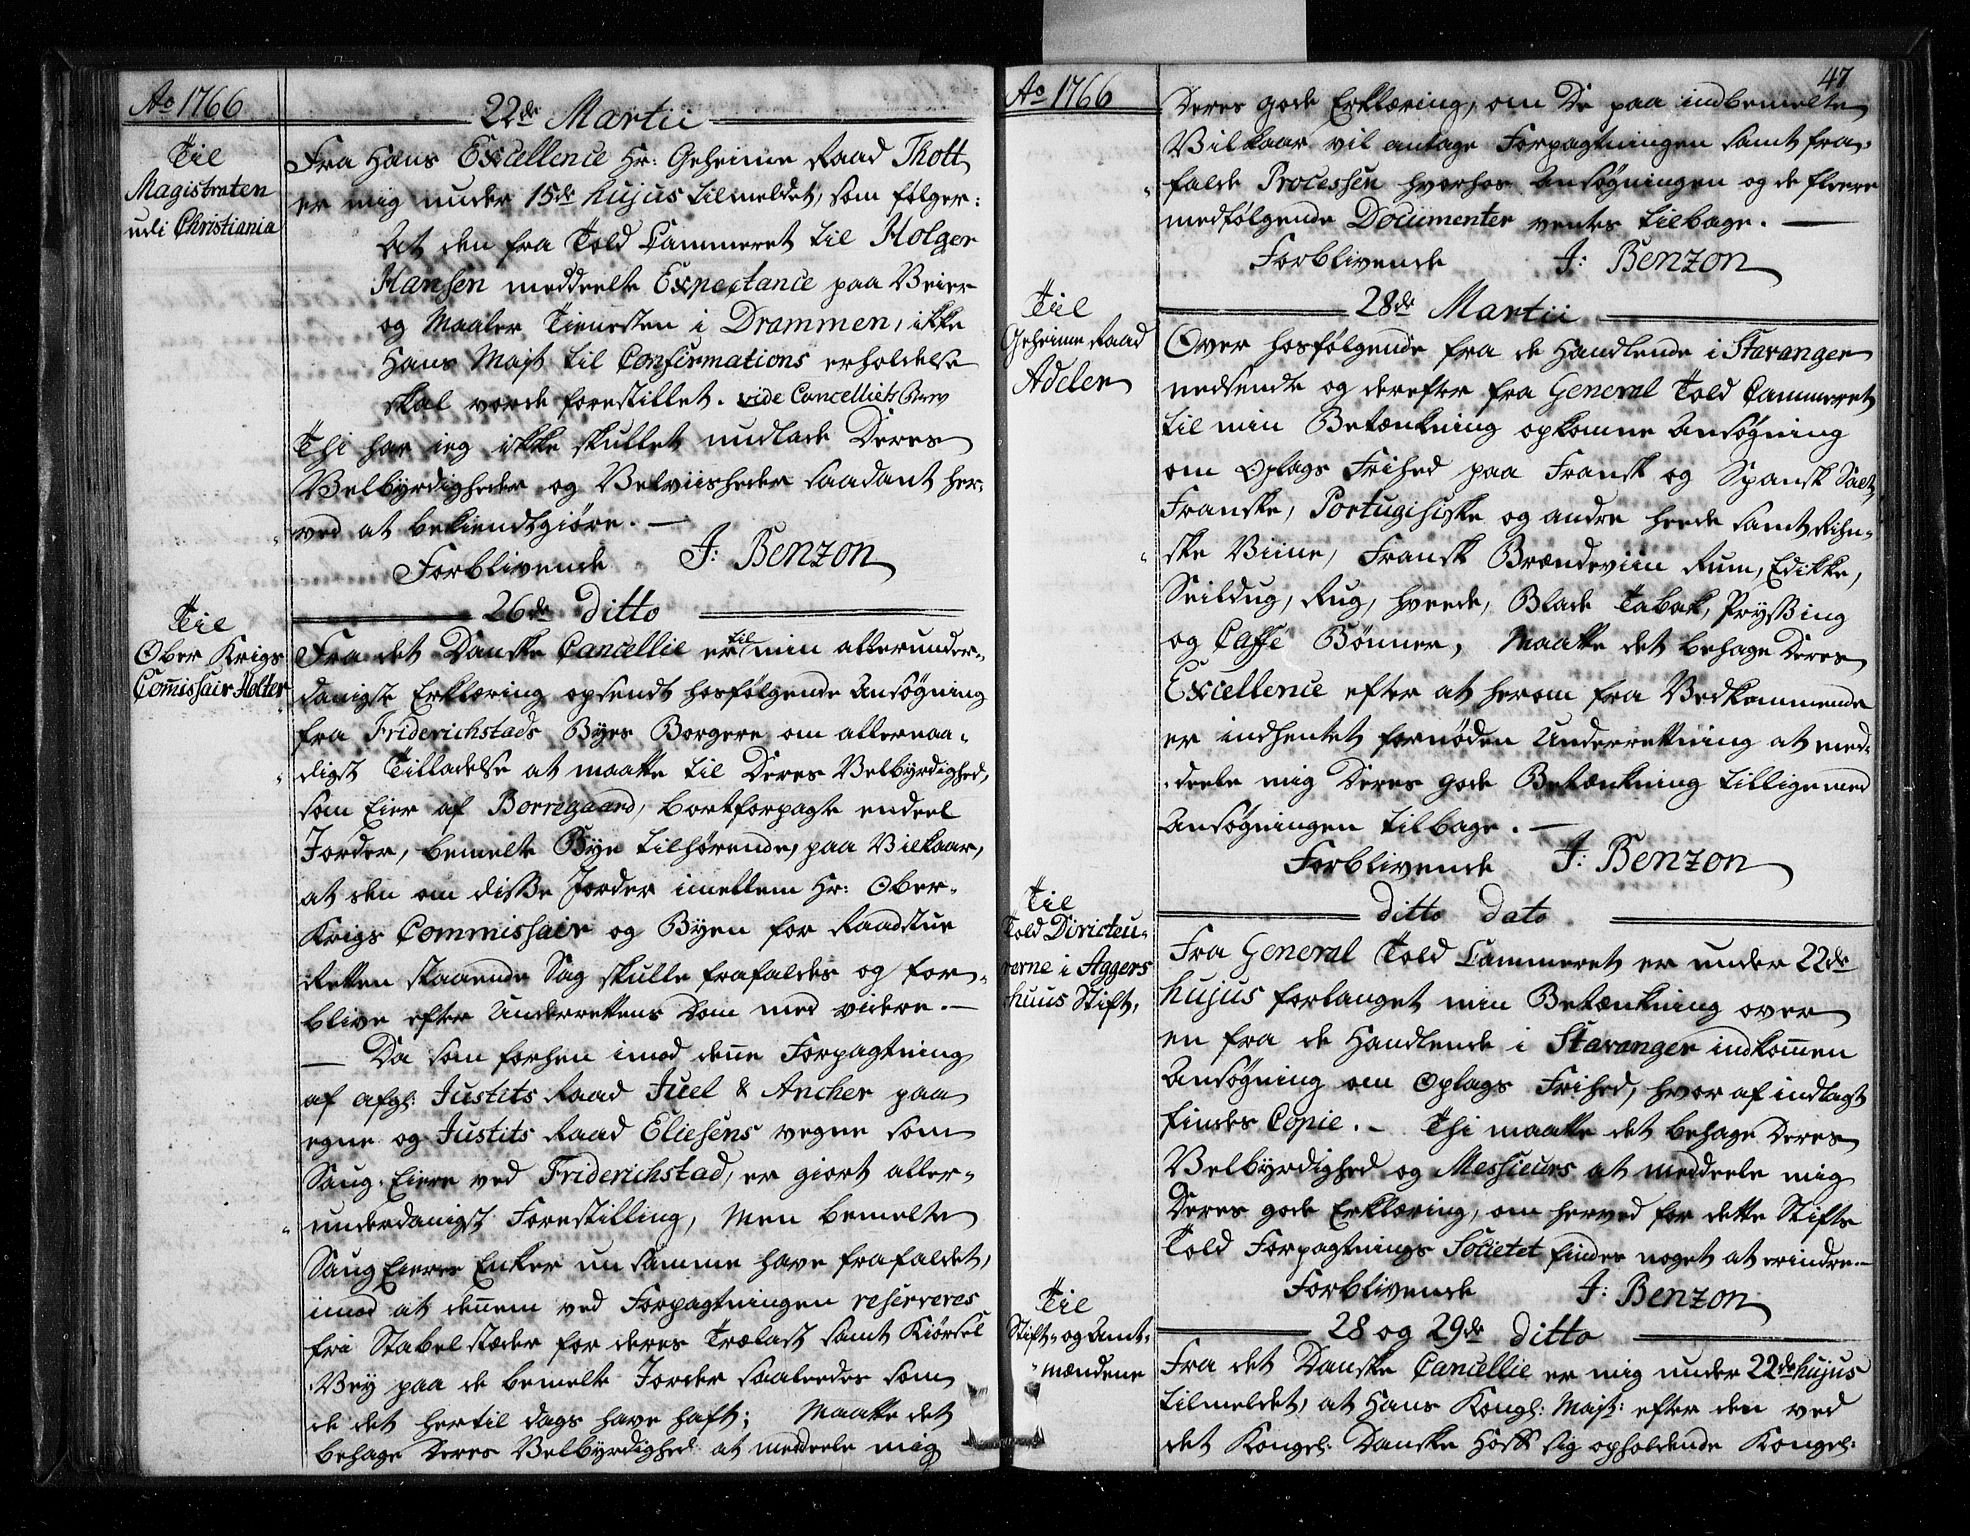 Ao 1766
22de Martii
Til
Magistraten
udi Christiania
Fra Hans Excellence Hr: Geheime Raad Thott
er mig under 15de hujus tilmeldet, som følger:
At den fra Told Cammeret til Holger
Hansen meddeelte Expectance paa Veier
og Maaler Tienesten i Drammen, ikke
Hans Majst til Confirmations erholdelse
skal vorde forestillet. vide Cancelliets Brev
Thi har jeg ikke skullet undlade Deres
Velbyrdigheder og Velviisheder saadant her-
ved at bekiendtgiøre. —
Forblivende J: Benzon
26de ditto
Til
Ober Krigs
Comissair Holter
Fra det Danske Cancellie er til min allerunder-
danigste Erklæring opsendt hosfølgende Ansøgning
fra Friderichstads Byes Borgere om allernaa-
digst Tilladelse at maatte til Deres Velbyrdighed,
som Eier af Borregaard, bortforpagte endeel
Jorder, bemelte Bye tilhørende, paa Vilkaar,
at den om disse Jorder imellem Hr: Ober-
Krigs Commissair og Byen for Raadstue
Retten staaende Sag skulle frafaldes og for-
blive efter Underrettens Dom med videre. —
— Da som forhen imod denne Forpagtning
af afgl: Justits Raad Juel & Ancher paa
egne og Justits Raad Eliesens vegne som
Saug-Eiere ved Friderichstad, er giort aller-
underdanigst Forestilling, Men bemelte
Saug Eieres Enker nu samme have frafaldet,
imod at dennem ved Forpagtningen reserveres
fri Stabel stæder for deres Trælast samt Kiørsel
Vey paa de bemelte Jorder saaledes som
de det hertil dags have haft; Maatte det
behage Deres Velbyrdighed at meddeele mig
Ao 1766
47
Deres gode Erklæring, om De paa indbemelte
Vilkaar vil antage Forpagtningen samt fra-
falde Processen hvorhos Ansøgningen og de fleere
medfølgende Documenter ventes tilbage. —
Forblivende J: Benzon
28de Martii
Til
Geheime Raad
Adeler
Over hosfølgende fra de Handlende i Stavanger
nedsendte og derefter fra General Told Cammeret
til min Betænkning opkomne Ansøgning
om Oplags Frihed paa Fransk og Spansk Salt,
Franske, Portugisiske og andre heede samt Rihn-
ske Viine, Fransk Brændeviin Rum, Edikke,
Seildug, Rug, Hveede, Blade Tabak, Pryssing
og Caffe Bønner, Maatte det behage Deres
Excellence efter at herom fra Vedkommende
er indhentet fornøden Underrettning at med-
deele mig Deres gode Betænkning tilligemed
Ansøgningen tilbage. —
Forblivende J: Benzon
ditto dato
Til
Told Directeu-
rerne i Aggers
huus Stift,
Fra General Told Cammeret er under 22de
hujus forlanget min Betænkning over
en fra de Handlende i Stavanger indkommen
Ansøgning om Oplags Frihed, hvor af indlagt
findes Copie. — Thi maatte det behage Deres
Velbyrdighed og Messieurs at meddeele mig
Deres gode Erklæring, om herved for dette Stifts
Told Forpagtnings Societet findes noget at erindre. —
Forblivende J: Benzon
28 og 29de ditto
Til
Stift- og Amt-
mændene
Fra det Danske Cancellie er mig under 22de hujus
tilmeldet, at Hans Kongl: Majst: efter den ved
det Kongel: Danske Hoff sig opholdende Kongel: